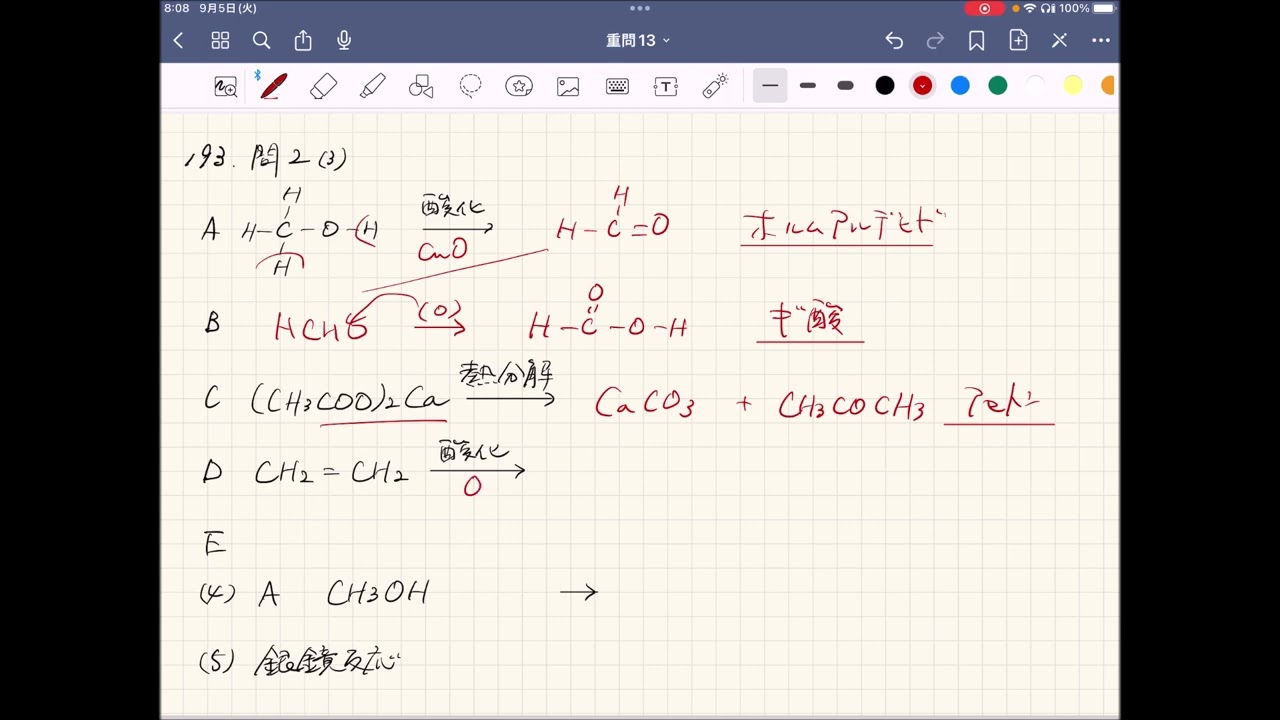 8:08 9月5日(火) 100%
重問13
T
193. 問2(3)
H H
A H-C-O-H 酸化 CuO H-C=O ホルムアルデヒド
H
O
B HCHO (O) H-C-O-H ギ酸
C (CH3COO)2Ca 熱分解 CaCO3 + CH3COCH3 アセトン
D CH2=CH2 酸化 O
E
(4) A CH3OH →
(5) 銀鏡反応